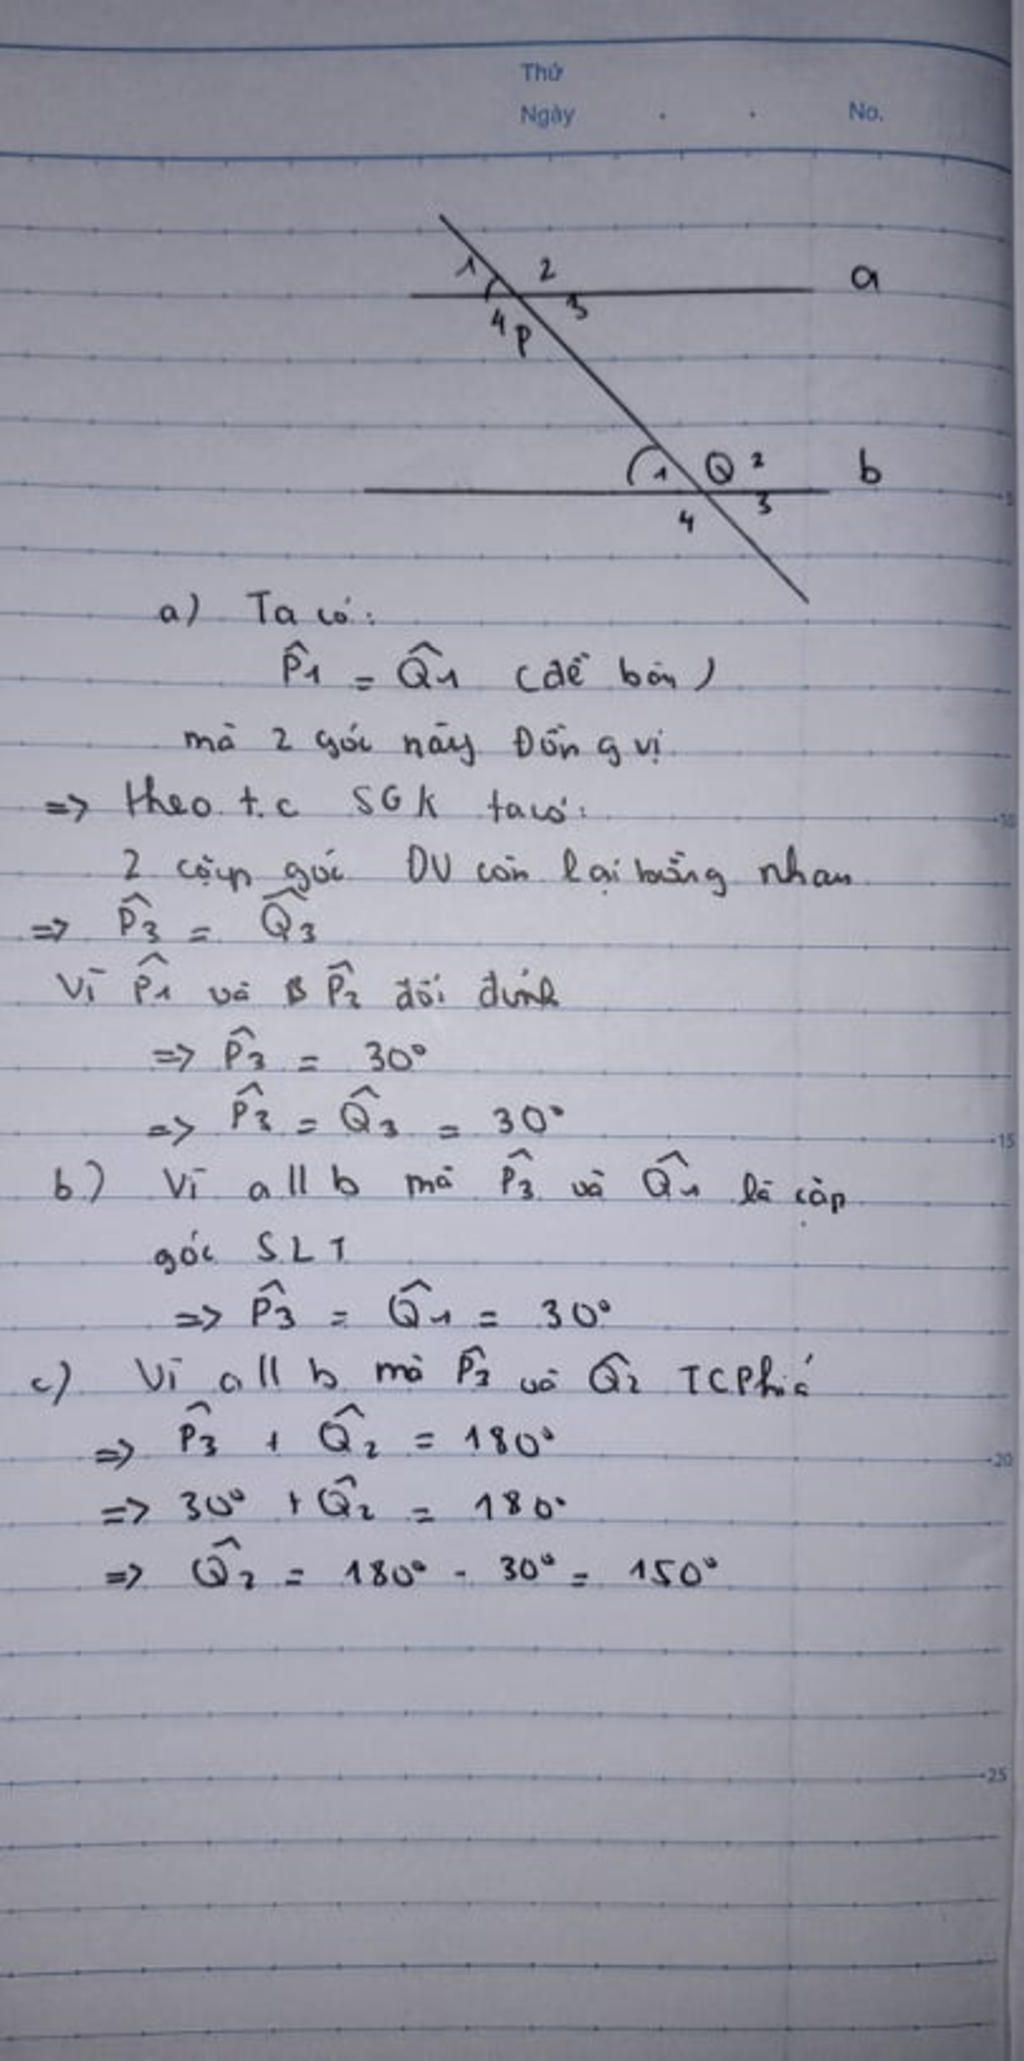 Thứ
Ngày . . No.
1 2 a
4 P 3
1 Q 2 b
4 3
a) Ta có:
P̂1 = Q̂1 (đề bài)
mà 2 góc này Đồng vị
=> theo t.c SGK ta có:
2 cặp góc ĐV còn lại bằng nhau
=> P̂3 = Q̂3
Vì P̂1 và P̂2 đối đỉnh
=> P̂3 = 30°
=> P̂3 = Q̂3 = 30°
b) Vì a//b mà P̂3 và Q̂1 là cặp
góc S.L.T
=> P̂3 = Q̂1 = 30°
c) Vì a//b mà P̂3 và Q̂2 TCPhía
=> P̂3 + Q̂2 = 180°
=> 30° + Q̂2 = 180°
=> Q̂2 = 180° - 30° = 150°
10
15
20
25